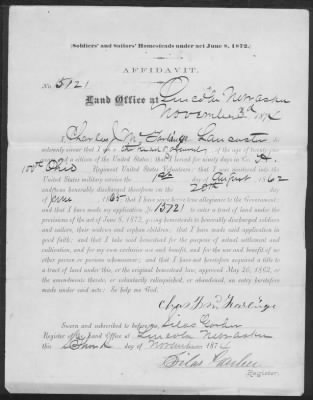 (Soldiers' and Sailors' Homesteads under act June 8, 1872.)
AFFIDAVIT.
No. 15721
Land Office at Lincoln Nebraska
November 3d 187
I Charles J. of Lancaster, do
solemnly swear that I am a resident of, of the age of twenty-one
and a citizen of the United States; that I served for ninety days in Co. A.
100th Ohio Regiment United States Volunteers; that I was mustered into the
United States military service the 1st day of August, 1862
and was honorably discharged therefrom on the 20th day
of June 1865; that I have since borne true allegiance to the Government;
and that I have made my application No. 15721 to enter a tract of land under the provisions
of the act of June 8, 1872, giving homesteads to honorably discharged soldiers
and sailors, their widows and orphan children; that I have made said application in
good faith; and that I take said homestead for the purpose of actual settlement and
cultivation, and for my own exclusive use and benefit, and for the use and benefit of no
other person or persons whomsoever; and that I have not heretofore acquired a title to
a tract of land under this, or the original homestead law, approved May 20, 1862, or
the amendments thereto, or voluntarily relinquished, or abandoned, an entry heretofore
made under said acts: So help me God.
Chas
Sworn and subscribed to before me, Silas Garber
Register of the Land Office at Lincoln Nebraska
this day of November 187
Silas Garber
Register.